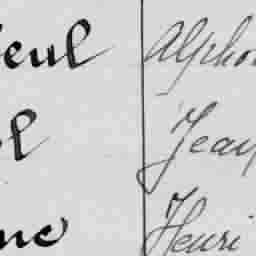 eul Alpho
l Jean
ne Henri